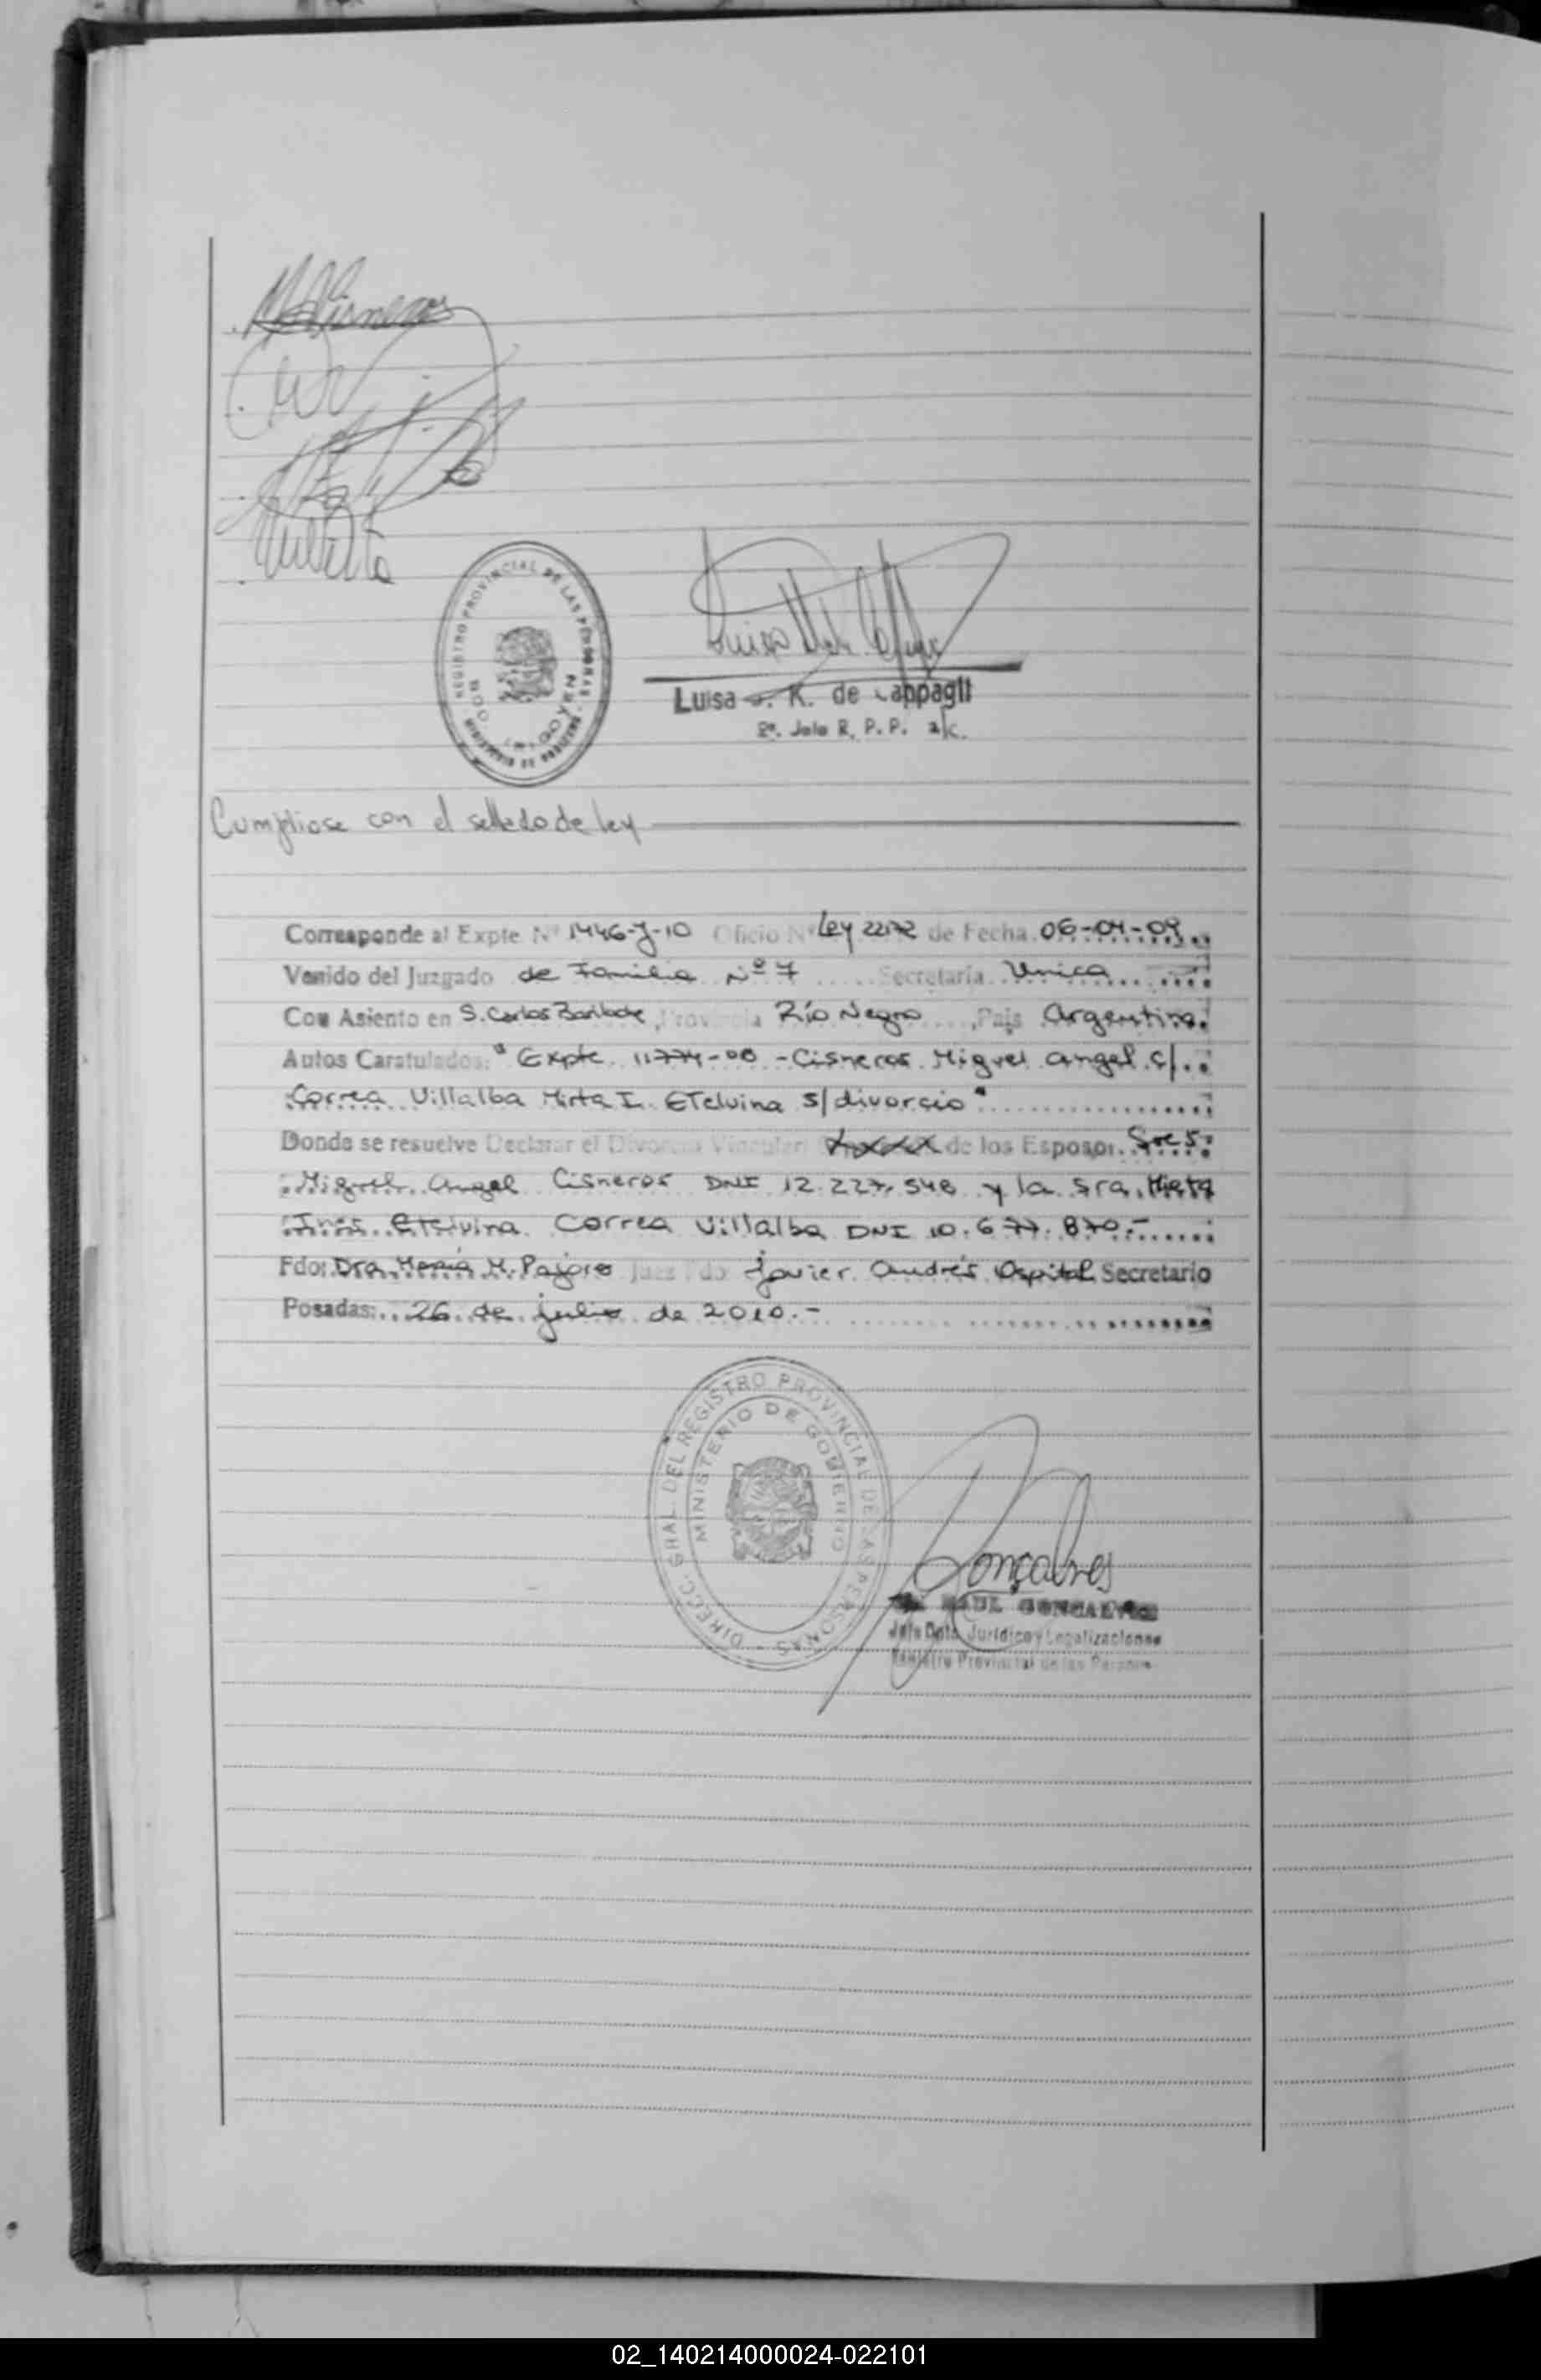 MACisneros
REGISTRO PROVINCIAL DE LAS PERSONAS
BDO. IRIGOYEN
MINISTERIO DE GOBIERNO
Luisa J. K. de Cappagli
2º. Jefe R. P. P. a/c.
Cumpliose con el sellado de ley
Corresponde al Expte. Nº 1446-J-10 Oficio Nº Ley 22172 de Fecha 06-04-09
Venido del Juzgado de Familia Nº 7 Secretaría Unica
Con Asiento en S. Carlos Bariloche, Provincia Río Negro, Pais Argentina.
Autos Caratulados: "Expte. 11774-08 - Cisneros Miguel Angel c/
Correa Villalba Mirta I. Etelvina s/divorcio"
Donde se resuelve Declarar el Divorcio Vincular de los Esposos Sres:
Miguel Angel Cisneros DNI 12.227.548 y la Sra. Mirta
Ines Etelvina Correa Villalba DNI 10.677.870.-
Fdo: Dra. María M. Pajaro Juez Fdo Javier Andrés Ospital Secretario
Posadas: 26 de julio de 2010.-
DIRECC. GRAL. DEL REGISTRO PROVINCIAL DE LAS PERSONAS
MINISTERIO DE GOBIERNO
Gonçalves
RAUL GONCALVES
Jefe Dpto. Jurídico y Legalizaciones
Registro Provincial de las Personas
02_140214000024-022101